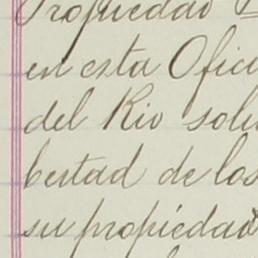 Propiedad
en esta Ofici
del Rio solu
bertad de los
su propiedad